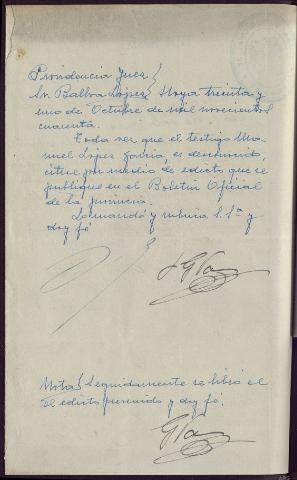 Providencia Juez
Sr. Balboa López } Noya treinta y
uno de Octubre de mil novecientos
cuarenta.
Toda vez que el testigo Ma-
nuel López García, es desconocido,
cítese por medio de edicto que se
publique en el Boletín Oficial
de la provincia.
Lo mandó y rubrica S. Sª y
doy fé
Nota } Seguidamente se libró el
el edicto prevenido y doy fé.